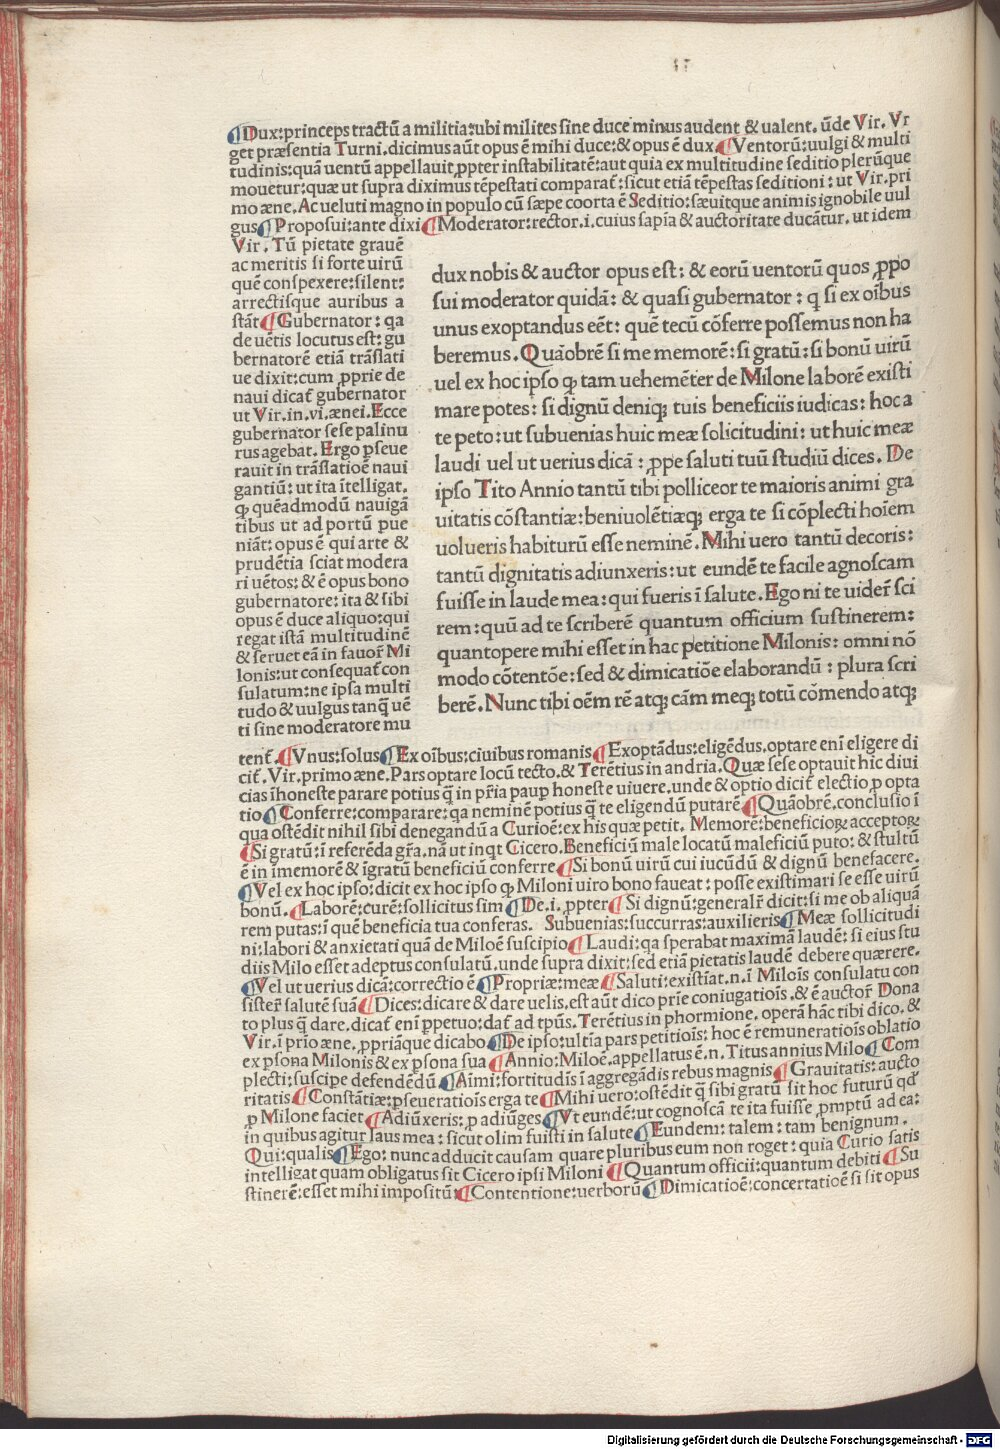 ¶Dux:princeps tractū a militia:ubi milites sine duce minus audent & ualent. ūde Vir. Vr
get præsentia Turni.dicimus aūt opus ē mihi duce:& opus ē dux.¶Ventorū:uulgi & multi
tudinis:quā uentū appellauit ꝓpter instabilitatē:aut quia ex multitudine seditio plerūque
mouetur:quæ ut supra diximus tēpestati comparat̄:sicut etiā tēpestas seditioni: ut Vir.pri
mo æne. Ac ueluti magno in populo cū sæpe coorta ē Seditio:sæuitque animis ignobile uul
gus¶Proposui:ante dixi¶Moderator:rector.i.cuius sapīa & auctoritate ducātur. ut idem
Vir. Tū pietate grauē
ac meritis si forte uirū
quē conspexere:silent:
arrectisque auribus a
stāt¶Gubernator: qa
de uētis locutus est: gu
bernatorē etiā trāslati
ue dixit:cum ꝓprie de
naui dicat̄ gubernator
ut Vir.in.vi.ænei.Ecce
gubernator sese palinu
rus agebat. Ergo ꝑseue
rauit in trāslatioē naui
gantiū: ut ita ītelligat.
ꝙ quēadmodū nauigā
tibus ut ad portū pue
niāt: opus ē qui arte &
prudētia sciat modera
ri uētos: & ē opus bono
gubernatore: ita & sibi
opus ē duce aliquo:qui
regat istā multitudinē
& seruet eā in fauor̄ Mi
lonis:ut consequat̄ con
sulatum:ne ipsa multi
tudo & uulgus tanq̄ uē
ti sine moderatore mu
dux nobis & auctor opus est: & eorū uentorū quos ꝓpo
sui moderator quidā: & quasi gubernator : q̄ si ex oībus
unus exoptandus eēt: quē tecū cōferre possemus non ha
beremus. Quāobrē si me memorē: si gratū: si bonū uirū
uel ex hoc ipso ꝙ tam uehemēter de Milone laborē existi
mare potes: si dignū deniqꝫ tuis beneficiis iudicas: hoc a
te peto: ut subuenias huic meæ solicitudini: ut huic meæ
laudi uel ut uerius dicā : ꝓpe saluti tuū studiū dices. De
ipso Tito Annio tantū tibi polliceor te maioris animi gra
uitatis cōstantiæ: beniuolētiæqꝫ erga te si cōplecti hoīem
uolueris habiturū esse neminē. Mihi uero tantū decoris:
tantū dignitatis adiunxeris: ut eundē te facile agnoscam
fuisse in laude mea: qui fueris ī salute. Ego ni te uider̄ sci
rem: quū ad te scriberē quantum officium sustinerem:
quantopere mihi esset in hac petitione Milonis: omni nō
modo cōtentōe: sed & dimicatiōe elaborandū : plura scri
berē. Nunc tibi oēm rē atqꝫ cām meqꝫ totū cōmendo atqꝫ
tent̄.¶Vnus:solus¶Ex oībus:ciuibus romanis¶Exoptādus:eligēdus.optare enī eligere di
cit̄. Vir.primo æne. Pars optare locū tecto.& Terētius in andria. Quæ sese optauit hic diui
cias īhoneste parare potius q̄ in pr̄ia pauꝑ honeste uiuere.unde & optio dicit̄ electio ꝓ opta
tio¶Conferre:comparare: qa neminē potius q̄ te eligendū putarē¶Quāobrē.conclusio ī
qua ostēdit nihil sibi denegandū a Curioē: ex his quæ petit. Memorē:beneficioꝝ acceptoꝝ
¶Si gratū: ī referēda gr̄a. nā ut inqt Cicero. Beneficiū male locatū maleficiū puto: & stultū
ē in īmemorē & īgratū beneficiū conferre¶Si bonū uirū cui iucūdū & dignū benefacere.
¶Vel ex hoc ipso: dicit ex hoc ipso ꝙ Miloni uiro bono faueat: posse existimari se esse uirū
bonū.¶Laborē:curē:sollicitus sim¶De.i.ꝓpter¶Si dignū:generalr̄ dicit: si me ob aliquā
rem putas: ī quē beneficia tua conferas. Subuenias:succurras:auxilieris¶Meæ sollicitudi
ni:labori & anxietati quā de Miloē suscipio¶Laudi: qa sperabat maximā laudē: si eius stu
diis Milo esset adeptus consulatū.unde supra dixit: sed etiā pietatis laudē debere quærere.
¶Vel ut uerius dicā:correctio ē¶Propriæ:meæ¶Saluti:existīat.n.ī Miloīs consulatu con
sister̄ salutē suā¶Dices: dicare & dare uelis.est aūt dico prīe coniugatiōis .& ē auctor̄ Dona
to plus q̄ dare.dicat̄ enī ꝑpetuo:dat̄ ad tp̄us. Terētius in phormione. operā hāc tibi dico. &
Vir. ī prīo æne. ꝓpriāque dicabo¶De ipso:ultīa pars petitiōis: hoc ē remuneratiōis oblatio
ex ꝑsona Milonis & ex ꝑsona sua¶Annio:Miloē.appellatus ē.n.Titus annius Milo¶Com
plecti:suscipe defendēdū¶Aīmi:fortitudīs ī aggregādis rebus magnis¶Grauitatis:aucto
ritatis¶Constātiæ:ꝑseueratiōis erga te¶Mihi uero:ostēdit q̄ sibi gratū sit hoc futurū qđ
ꝓ Milone faciet¶Adiūxeris: ꝓ adiūges¶Vt eundē:ut cognoscā te ita fuisse ꝓmptū ad ea:
in quibus agitur laus mea: sicut olim fuisti in salute¶Eundem: talem: tam benignum.
Qui:qualis¶Ego: nunc adducit causam quare pluribus eum non roget: quia Curio satis
intelligat quam obligatus sit Cicero ipsi Miloni¶Quantum officii:quantum debiti¶Su
stinerē:esset mihi impositū:¶Contentione:uerborū¶Dimicatioē:concertatioē si sit opus
Digitalisierung gefördert durch die Deutsche Forschungsgemeinschaft - DFG